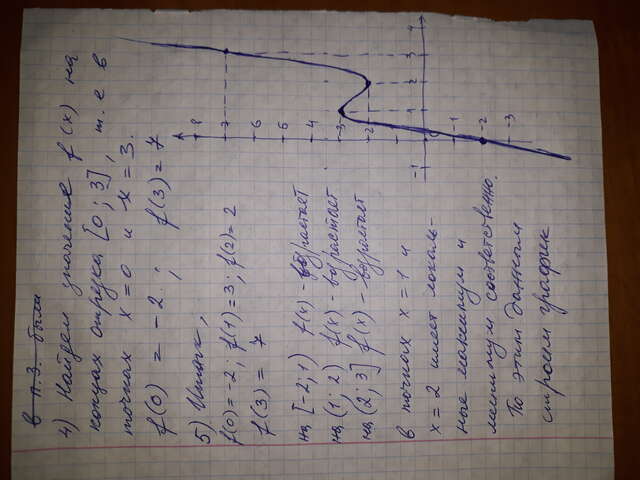 в п.3. были
4) Найдем значение f(x) на
концах отрезка [0; 3], т.е в
точках x = 0 и x = 3.
f(0) = -2 ; f(3) = 7
5) Итак,
f(0)=-2; f(1)=3; f(2)=2
f(3) = 7
на [-2; 1) f(x) - возрастает
на (1; 2) f(x) - возрастает
на (2; 3] f(x) - возрастает
в точках x = 1 и
x = 2 имеет локаль-
ные максимум и
минимум соответственно.
По этим данным
строим график
8
7
6
5
4
3
2
-1
-2
-3
-1
1
2
3
4